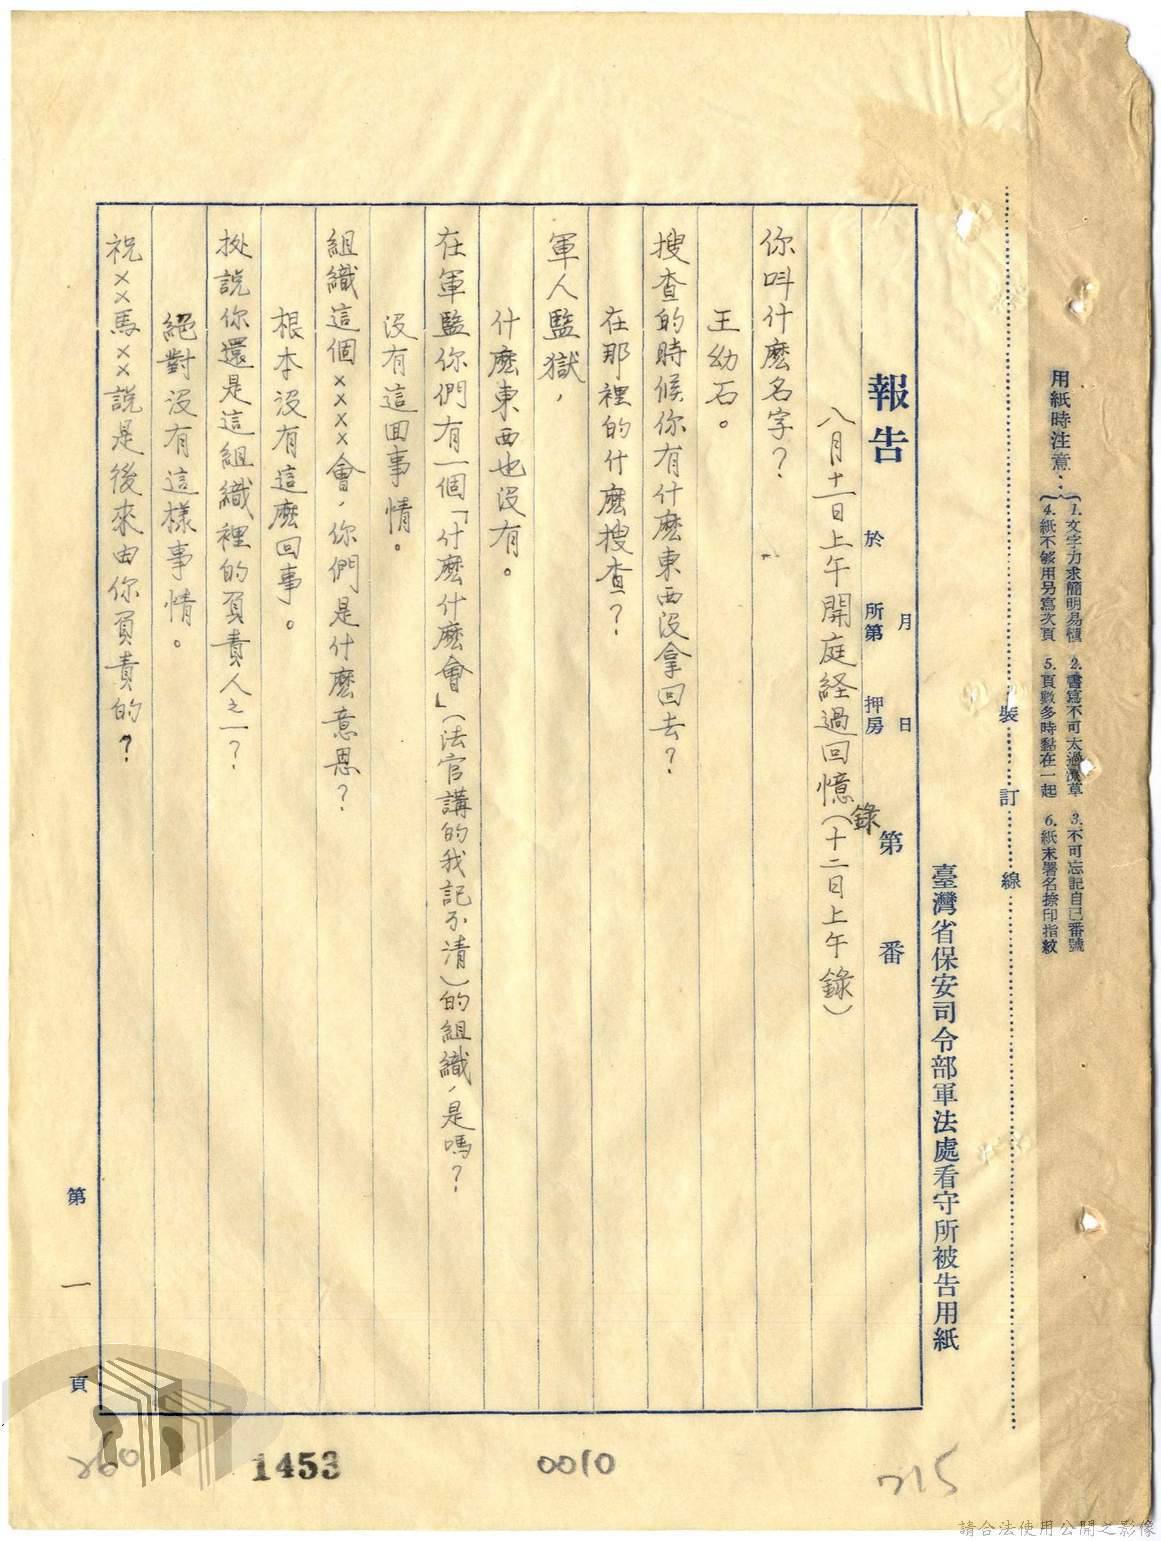 用紙時注意：
1.文字力求簡明易懂 2.書寫不可太過潦草 3.不可忘記自己番號
4.紙不够用另寫次頁 5.頁數多時黏在一起 6.紙末署名捺印指紋
裝 訂 線
臺灣省保安司令部軍法處看守所被告用紙
報告 於 月 日
所第 押房 第 番
八月十一日上午開庭経過回憶錄(十二日上午錄)
你叫什麽名字？
王幼石。
搜查的時候你有什麽東西沒拿回去？
在那裡的什麽搜查？
軍人監獄，
什麽東西也沒有。
在軍監你們有一個「什麽什麽會」(法官講的我記不清)的組織，是嗎？
沒有這回事情。
組織這個×××會，你們是什麽意思？
根本沒有這麽回事。
按說你還是這組織裡的負責人之一？
絕對沒有這樣事情。
祝××馬××說是後來由你負責的？
第 一 頁
260
1453
0010
715
請合法使用公開之影像